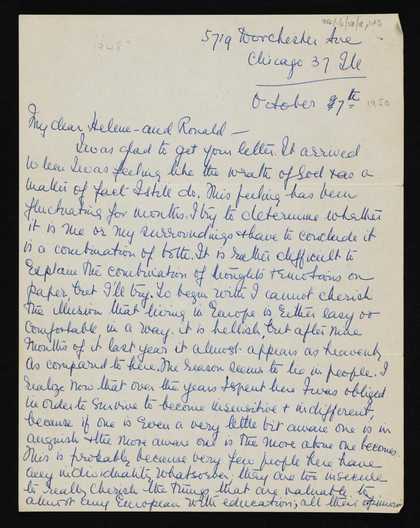 5719 Dorchester Ave
Chicago 37 Ill
October 27th 1950
My dear Helene - and Ronald -
I was glad to get your letter. It arrived
when I was feeling like the wrath of God & as a
matter of fact I still do. This feeling has been
fluctuating for months. I try to determine whether
it is me or my surroundings & have to conclude it
is a combination of both. It is rather difficult to
explain the combination of thoughts & emotions on
paper, but I'll try. To begin with I cannot cherish
the illusion that living in Europe is either easy or
comfortable in a way. it is hellish, but after nine
months of it last year it almost appears as heavenly
as compared to here. The reason seems to lie in people. I
realize now that over the years I spent here I was obliged
in order to survive to become insensitive & indifferent,
because if one is even a very little bit aware one is in
anguish & the more aware one is the more alone one becomes.
This is probably because very few people here have
any individuality whatsoever they are too insecure
to really cherish the things that are valuable to
almost any European with education; all their